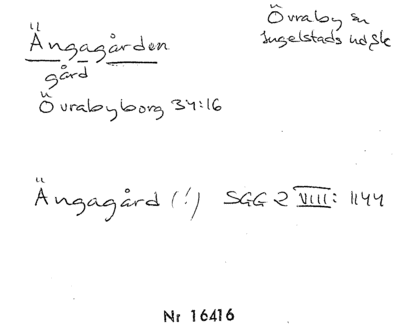 Ängagården
gård
Övrabyborg 34:16
Övraby sn
Ingelstads hd, Sk
Ängagård (!) SGG 2 VIII: 1144
Nr 16416